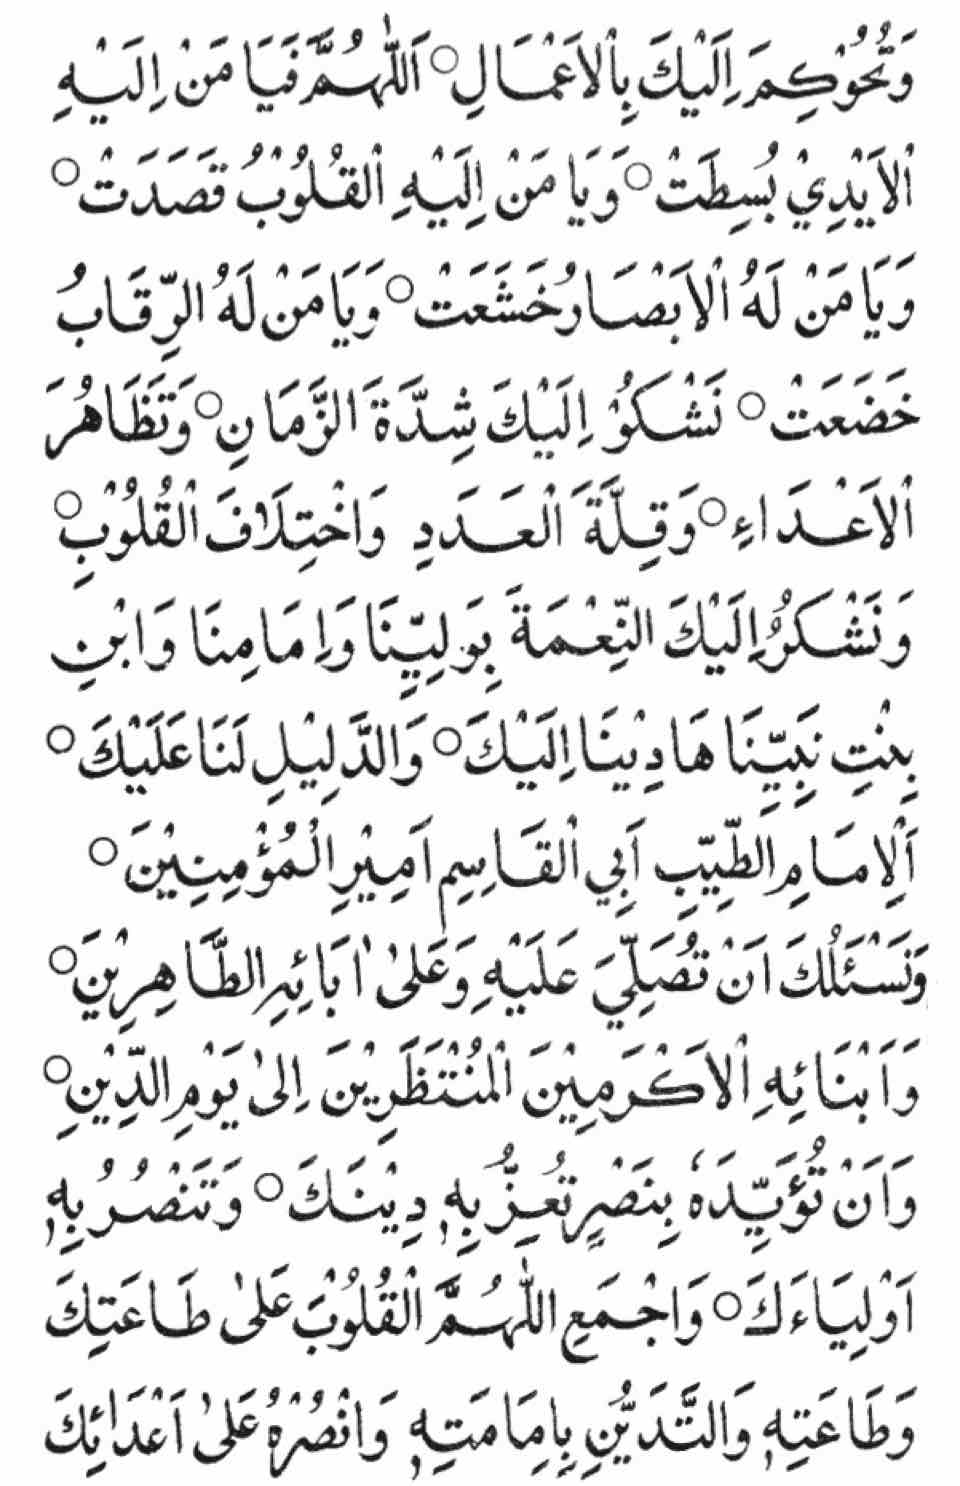 وَتُحُوْكِمَ اِلَيْكَ بِاْلاَعْمَالِ ○ اَللّٰهُمَّ فَيَا مَنْ اِلَيْهِ
اْلاَيْدِيْ بُسِطَتْ ○ وَيَا مَنْ اِلَيْهِ اْلقُلُوْبُ قَصَدَتْ ○
وَيَا مَنْ لَهُ اْلاَبْصَارُ خَشَعَتْ ○ وَيَا مَنْ لَهُ الرِّقَابُ
خَضَعَتْ ○ نَشْكُوْ اِلَيْكَ شِدَّةَ الزَّمَانِ ○ وَتَظَاهُرَ
اْلاَعْدَاءِ ○ وَقِلَّةَ اْلعَدَدِ وَاخْتِلَافَ اْلقُلُوْبِ ○
وَنَشْكُرُ اِلَيْكَ النِّعْمَةَ بِوَلِيِّنَا وَاِمَامِنَا وَابْنِ
بِنْتِ نَبِيِّنَا هَادِيْنَا اِلَيْكَ ○ وَالدَّلِيْلِ لَنَا عَلَيْكَ ○
اَلْاِمَامِ الطَّيِّبِ اَبِي اْلقَاسِمِ اَمِيْرِ الْمُؤْمِنِيْنَ ○
وَنَسْئَلُكَ اَنْ تُصَلِّيَ عَلَيْهِ وَعَلىٰ اٰبَائِهِ الطَّاهِرِيْنَ ○
وَاَبْنَائِهِ اْلاَكْرَمِيْنَ اْلمُنْتَظَرِيْنَ اِلىٰ يَوْمِ الدِّيْنِ ○
وَاَنْ تُؤَيِّدَهٗ بِنَصْرٍ تُعِزُّ بِهٖ دِيْنَكَ ○ وَتَنْصُرُ بِهٖ
اَوْلِيَاءَكَ ○ وَاجْمَعِ اللّٰهُمَّ اْلقُلُوْبَ عَلىٰ طَاعَتِكَ
وَطَاعَتِهٖ وَالتَّدَيُّنِ بِاِمَامَتِهٖ وَانْصُرْهُ عَلىٰ اَعْدَائِكَ